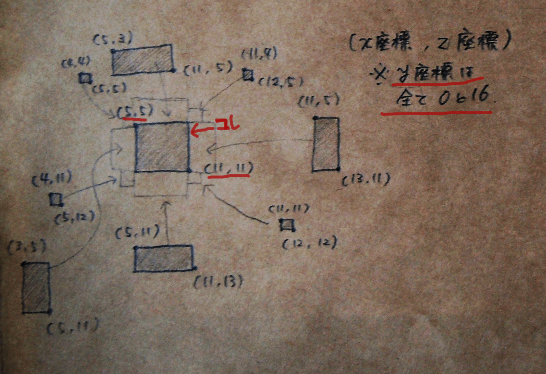 (x座標, z座標)
※ y座標は
全て0と16.
(5,3)
(11,5)
(4,4)
(5,5)
(11,4)
(12,5)
(5,5)
コレ
(11,11)
(11,5)
(13,11)
(4,11)
(5,12)
(11,11)
(12,12)
(3,5)
(5,11)
(5,11)
(11,13)